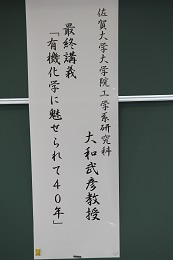 佐賀大学大学院工学系研究科
大和武彦教授
最終講義
「有機化学に魅せられて40年」